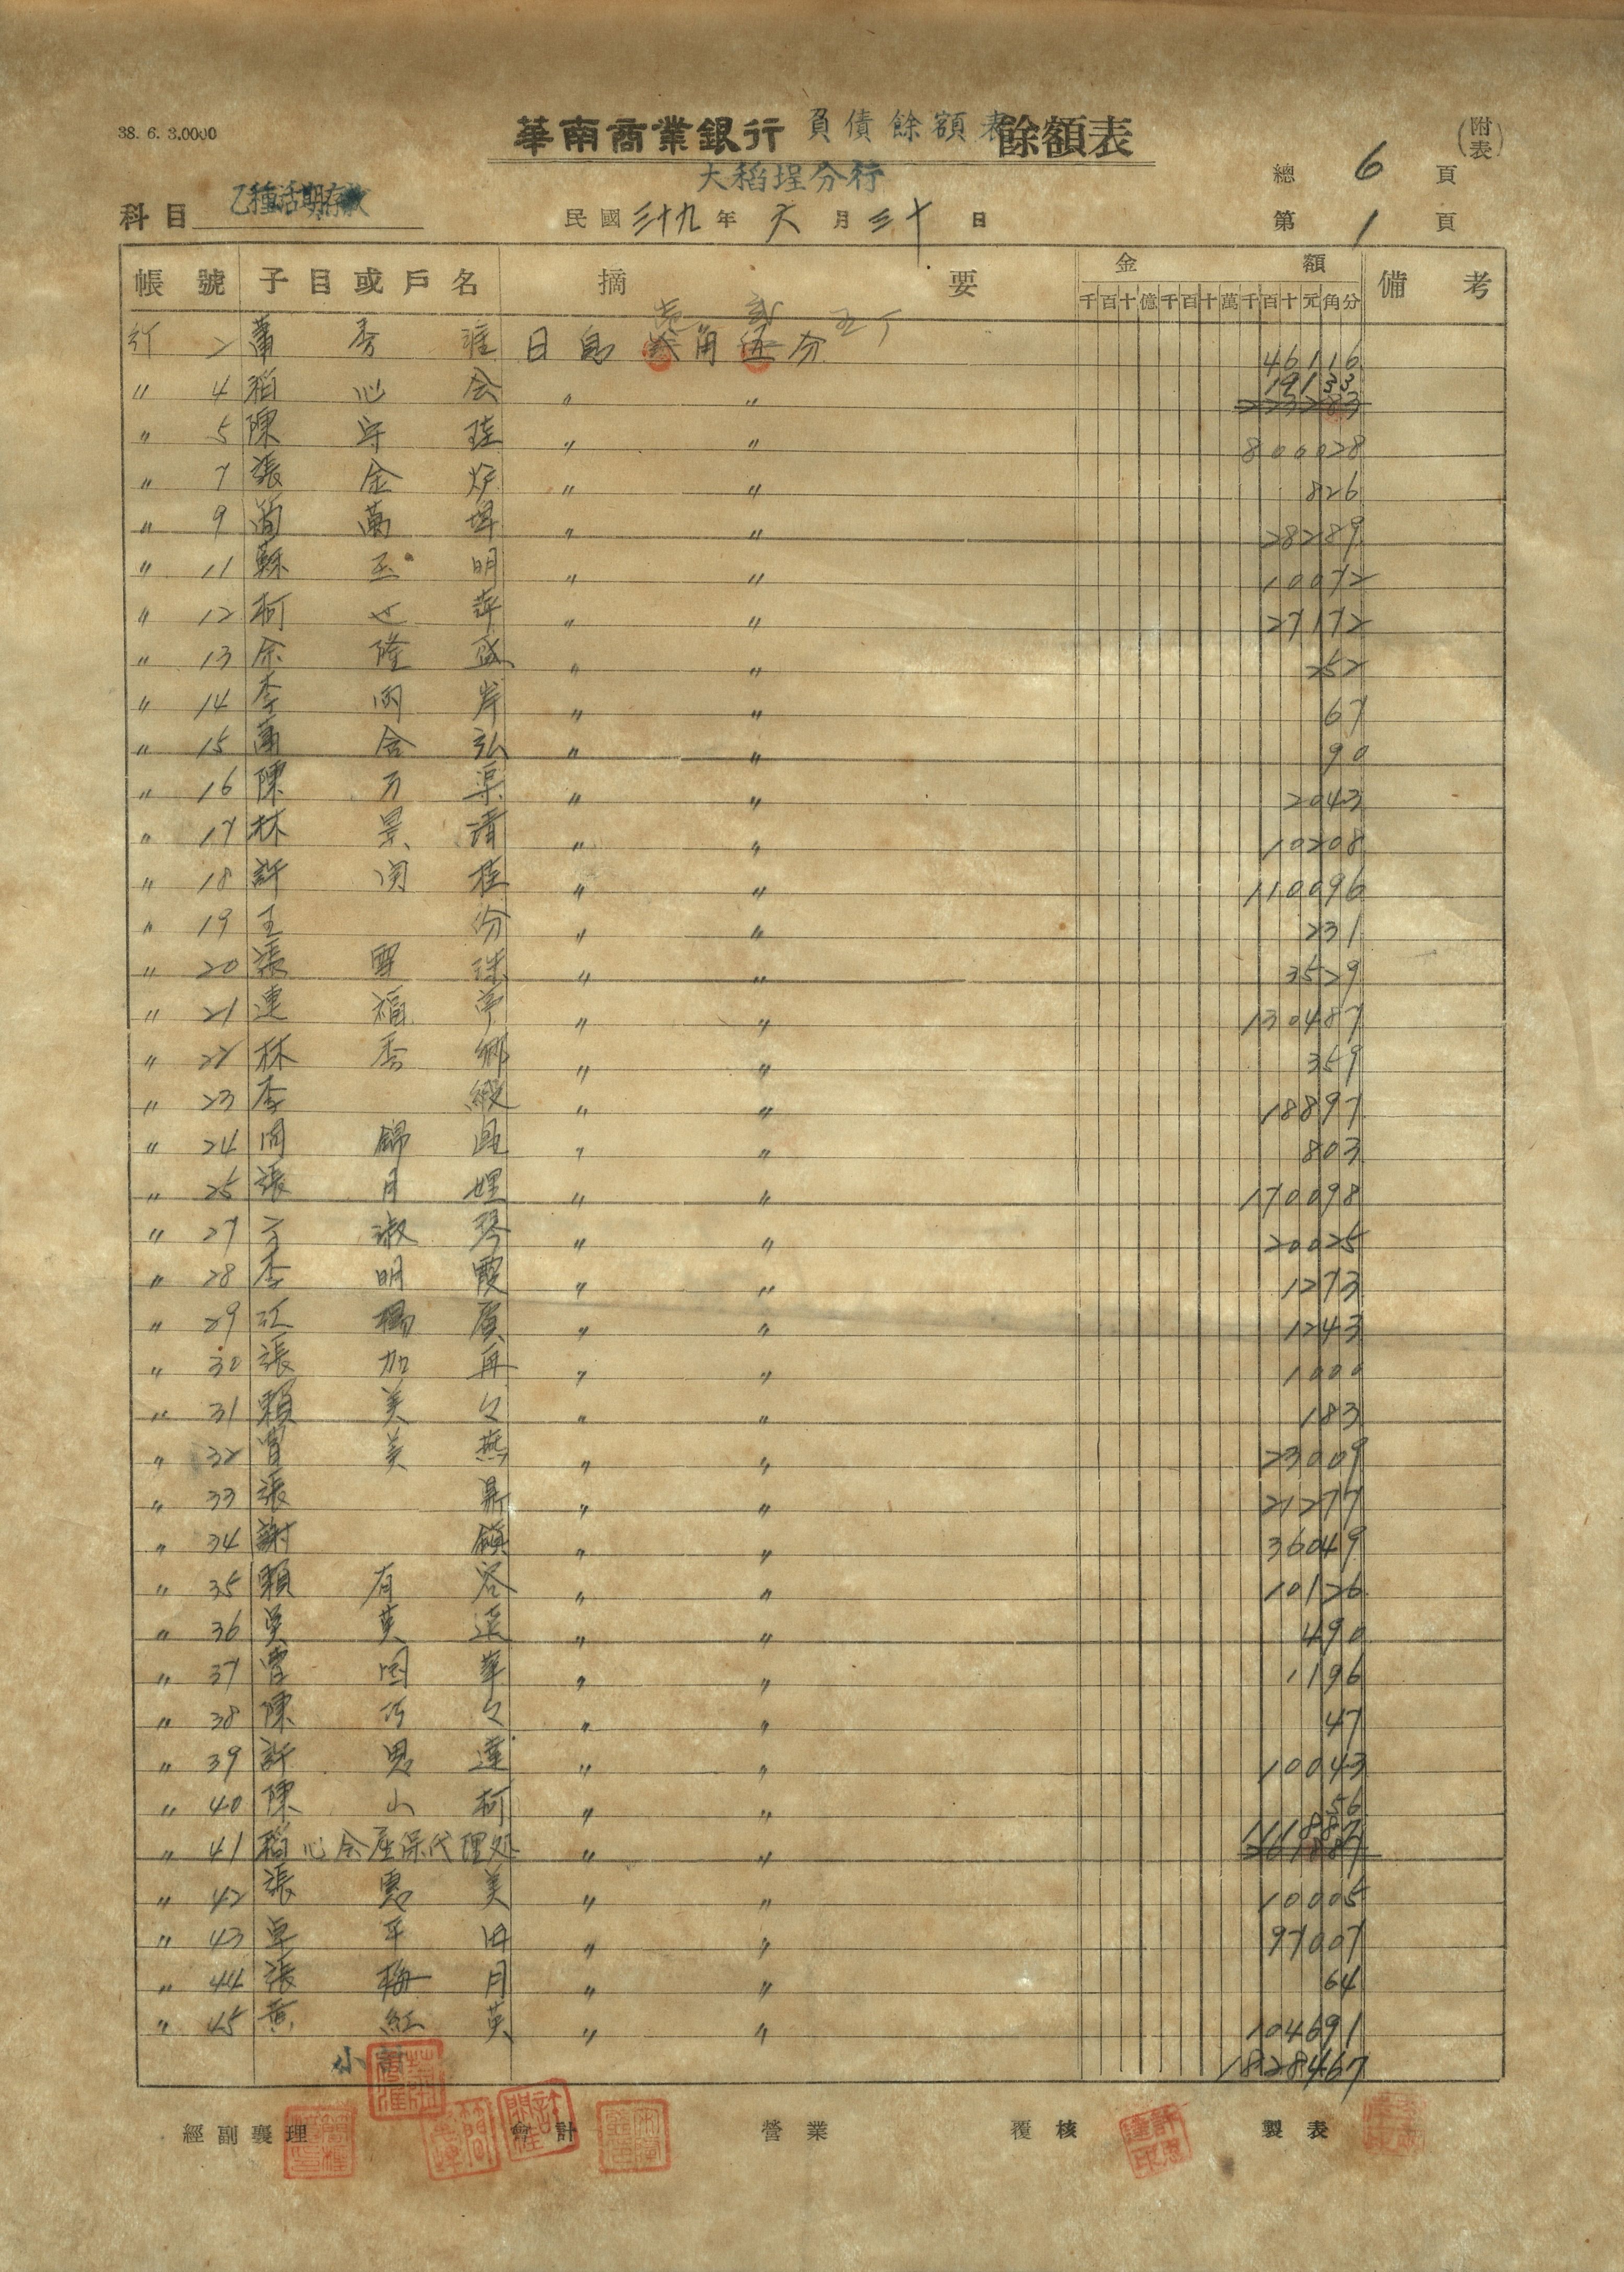 38. 6. 3.0000
華南商業銀行 負債餘額表 餘額表
(附表)
大稻埕分行
總 6 頁
科目 乙種活期存款
民國 三十九 年 六 月 三十 日
第 1 頁
帳號 子目或戶名 摘要 金額 備考
千百十億千百十萬千百十元角分
行 2 蕭秀淮 日息 角 分 46116
19133
" 4 稻心会 " " 223283
" 5 陳守 " " 800028
" 7 張金炉 " " 826
" 9 簡萬 " " 28289
" 11 蘇玉明 " " 10072
" 12 柯 萍 " " 27172
" 13 余隆盛 " " 252
" 14 李 岸 " " 67
" 15 蕭金弘 " " 90
" 16 陳万渠 " " 2043
" 17 林景清 " " 10208
" 18 許関桂 " " 110096
" 19 王份 " " 231
" 20 張雪珠 " " 3529
" 21 連福亭 " " 130487
" 22 林香鄉 " " 359
" 23 李緞 " " 18897
" 24 周錦 " " 803
" 25 張月娌 " " 170098
" 27 淑琴 " " 20025
" 28 李明霞 " " 1273
" 29 江楊廣 " " 1243
" 30 張加再 " " 1000
" 31 賴美々 " " 183
" 32 曾美燕 " " 23009
" 33 張鼎 " " 21277
" 34 謝鎮 " " 36049
" 35 賴有容 " " 10126
" 36 吳英 " " 490
" 37 曹国華 " " 1196
" 38 陳巧々 " " 47
" 39 許 達 " " 10043
" 40 陳山柯 " " 56
" 41 稻心会產保代理处 " "
" 42 張惠美 " " 10005
" 43 卓平田 " " 97007
" 44 張梅月 " " 64
" 45 黄紅英 " " 104691
小計 1828467
經副襄理 會計 營業 覆核 製表